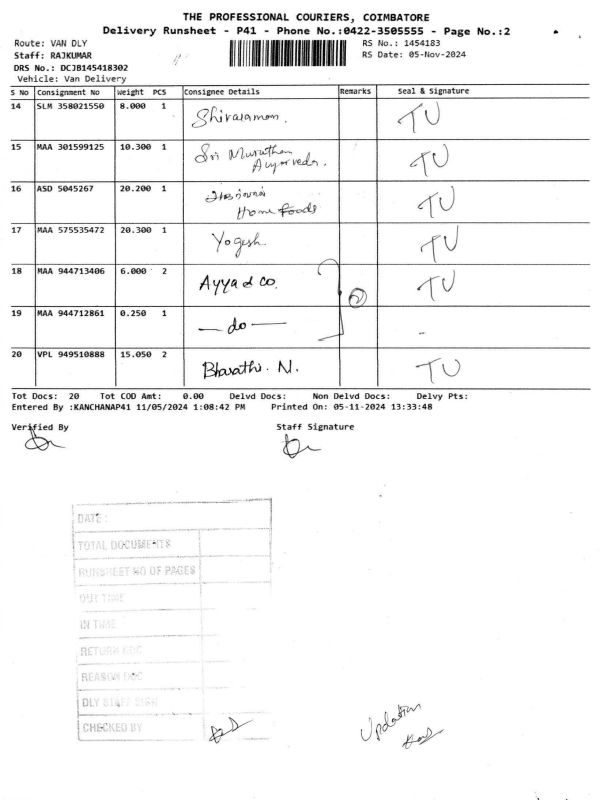 THE PROFESSIONAL COURIERS, COIMBATORE
Delivery Runsheet - P41 - Phone No.:0422-3505555 - Page No.:2
Route: VAN DLY RS No.: 1454183
Staff: RAJKUMAR RS Date: 05-Nov-2024
DRS No.: DCJB145418302
Vehicle: Van Delivery
S No Consignment No Weight PCS Consignee Details Remarks Seal & Signature
14 SLM 358021550 8.000 1 Shivaraman. TU
15 MAA 301599125 10.300 1 Sri Muruthan TU
Ayurveda.
16 ASD 5045267 20.200 1 TU
Home foods
17 MAA 575535472 20.300 1 Yogesh. TU
18 MAA 944713406 6.000 2 Ayya & co. 2 TU
19 MAA 944712861 0.250 1 — do — -
20 VPL 949510888 15.050 2 Bharathi. N. TU
Tot Docs: 20 Tot COD Amt: 0.00 Delvd Docs: Non Delvd Docs: Delvy Pts:
Entered By :KANCHANAP41 11/05/2024 1:08:42 PM Printed On: 05-11-2024 13:33:48
Verified By Staff Signature
DATE :
TOTAL DOCUMENTS
RUNSHEET NO OF PAGES
OUT TIME
IN TIME
RETURN DOC
REASON DOC
DLY STAFF SIGN
CHECKED BY
Updation